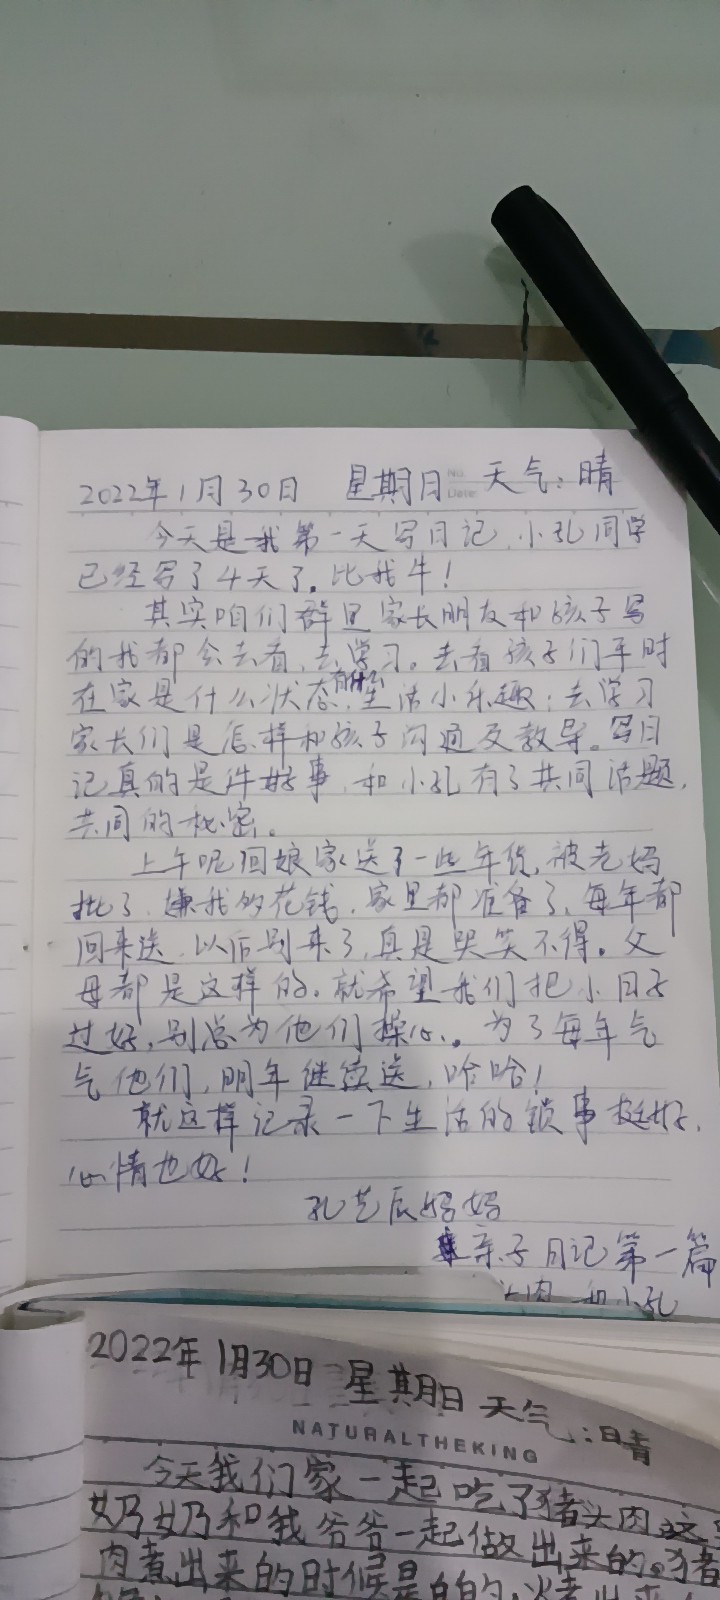 2022年1月30日 星期日 No. Date: 天气:晴
今天是我第一天写日记,小孔同学
已经写了4天了。比我牛!
其实咱们群里家长朋友和孩子写
的我都会去看,去学习。去看孩子们平时
在家是什么状态,有什么生活小乐趣;去学习
家长们是怎样和孩子沟通及教导。写日
记真的是件好事,和小孔有了共同话题,
共同的秘密。
上午呢回娘家送了一些年货,被老妈
批了,嫌我的花钱,家里都准备了,每年都
回来送,以后别来了,真是哭笑不得。父
母都是这样的。就希望我们把小日子
过好,别总为他们操心。为了每年气
气他们,明年继续送,哈哈!
就这样记录一下生活的锁事挺好,
心情也好!
孔艺辰妈妈
亲子日记第一篇
和小孔
2022年1月30日 星期日 天气:晴
NATURALTHEKING
今天我们家一起吃了猪头肉,这
奶奶和我爷爷一起做出来的。猪
肉煮出来的时候是白的,